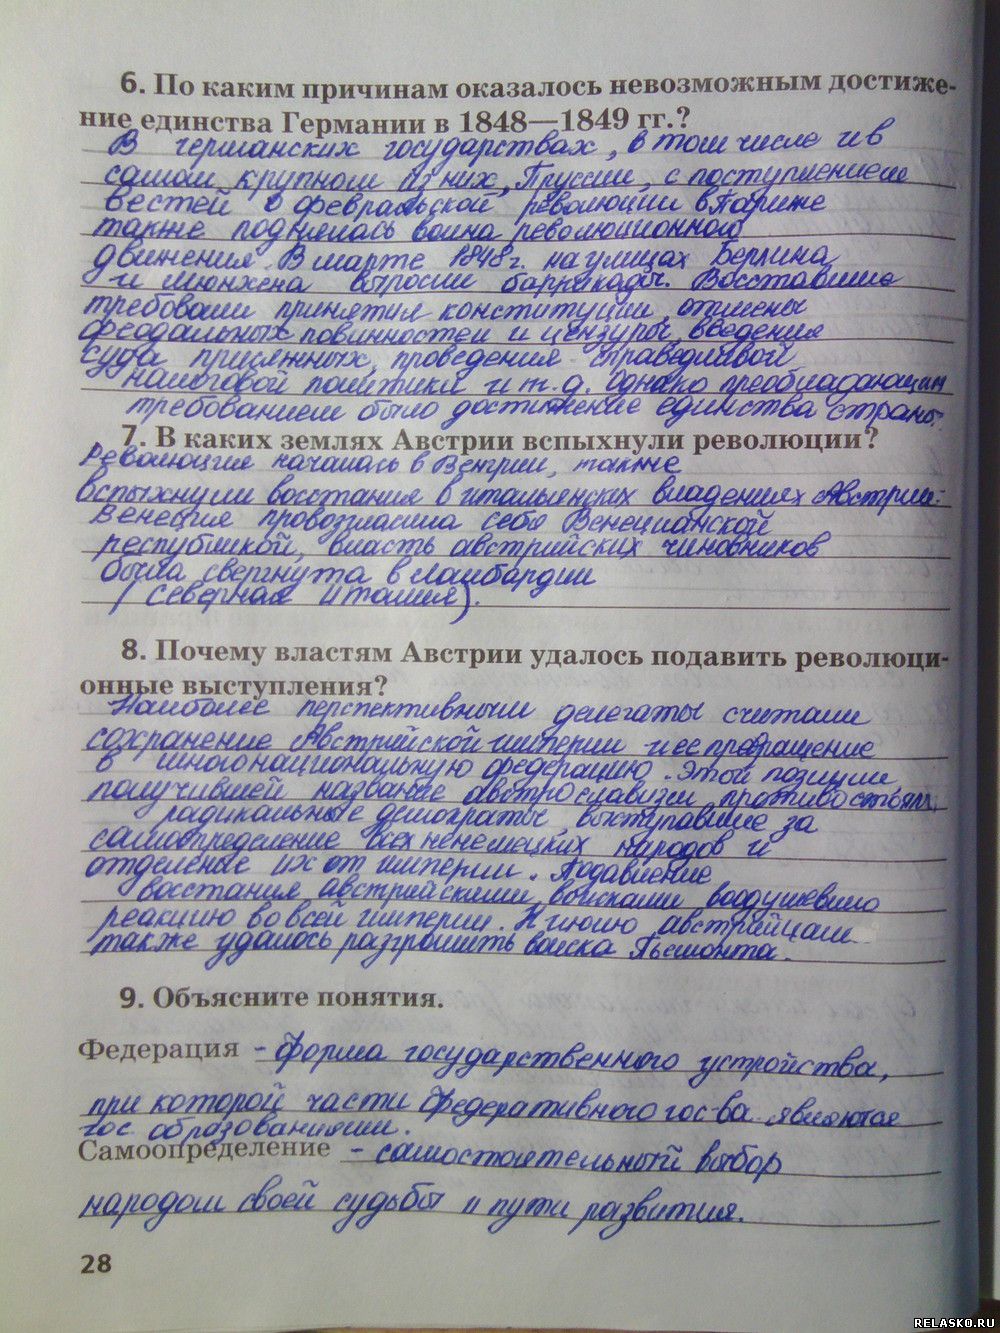 6. По каким причинам оказалось невозможным достиже-
ние единства Германии в 1848—1849 гг.?
В германских государствах, в том числе и в
самом крупном из них, Пруссии, с поступлением
вестей о февральской революции в Париже
также поднялась волна революционного
движения. В марте 1848 г. на улицах Берлина
и Мюнхена выросли баррикады. Восставшие
требовали принятия конституции, отмены
феодальных повинностей и цензуры, введения
суда присяжных, проведения справедливой
налоговой политики и т.д. Однако преобладающим
требованием было достижение единства страны.
7. В каких землях Австрии вспыхнули революции?
Революция началась в Венгрии, также
вспыхнули восстания в итальянских владениях Австрии:
Венеция провозгласила себя Венецианской
республикой, власть австрийских чиновников
была свергнута в Ламбардии
(северная Италия).
8. Почему властям Австрии удалось подавить революци-
онные выступления?
Наиболее перспективными делегаты считали
сохранение Австрийской империи и ее превращение
в многонациональную федерацию. Этой позиции
получившей название австрославизм противостояли
радикальные демократы, выступавшие за
самоопределение всех ненемецких народов и
отделение их от империи. Подавление
восстания австрийскими войсками воодушевило
реакцию во всей империи. К июлю австрийцам
также удалось разгромить войска Пьемонта.
9. Объясните понятия.
Федерация - форма государственного устройства,
при которой части федеративного гос-ва являются
гос. образованиями.
Самоопределение - самостоятельный выбор
народом своей судьбы и пути развития.
28
RELASKO.RU